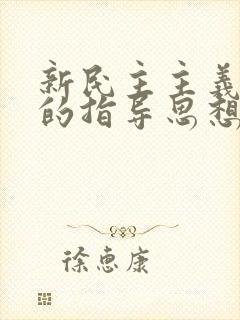 新民主主義
的指导思想
徐惠康